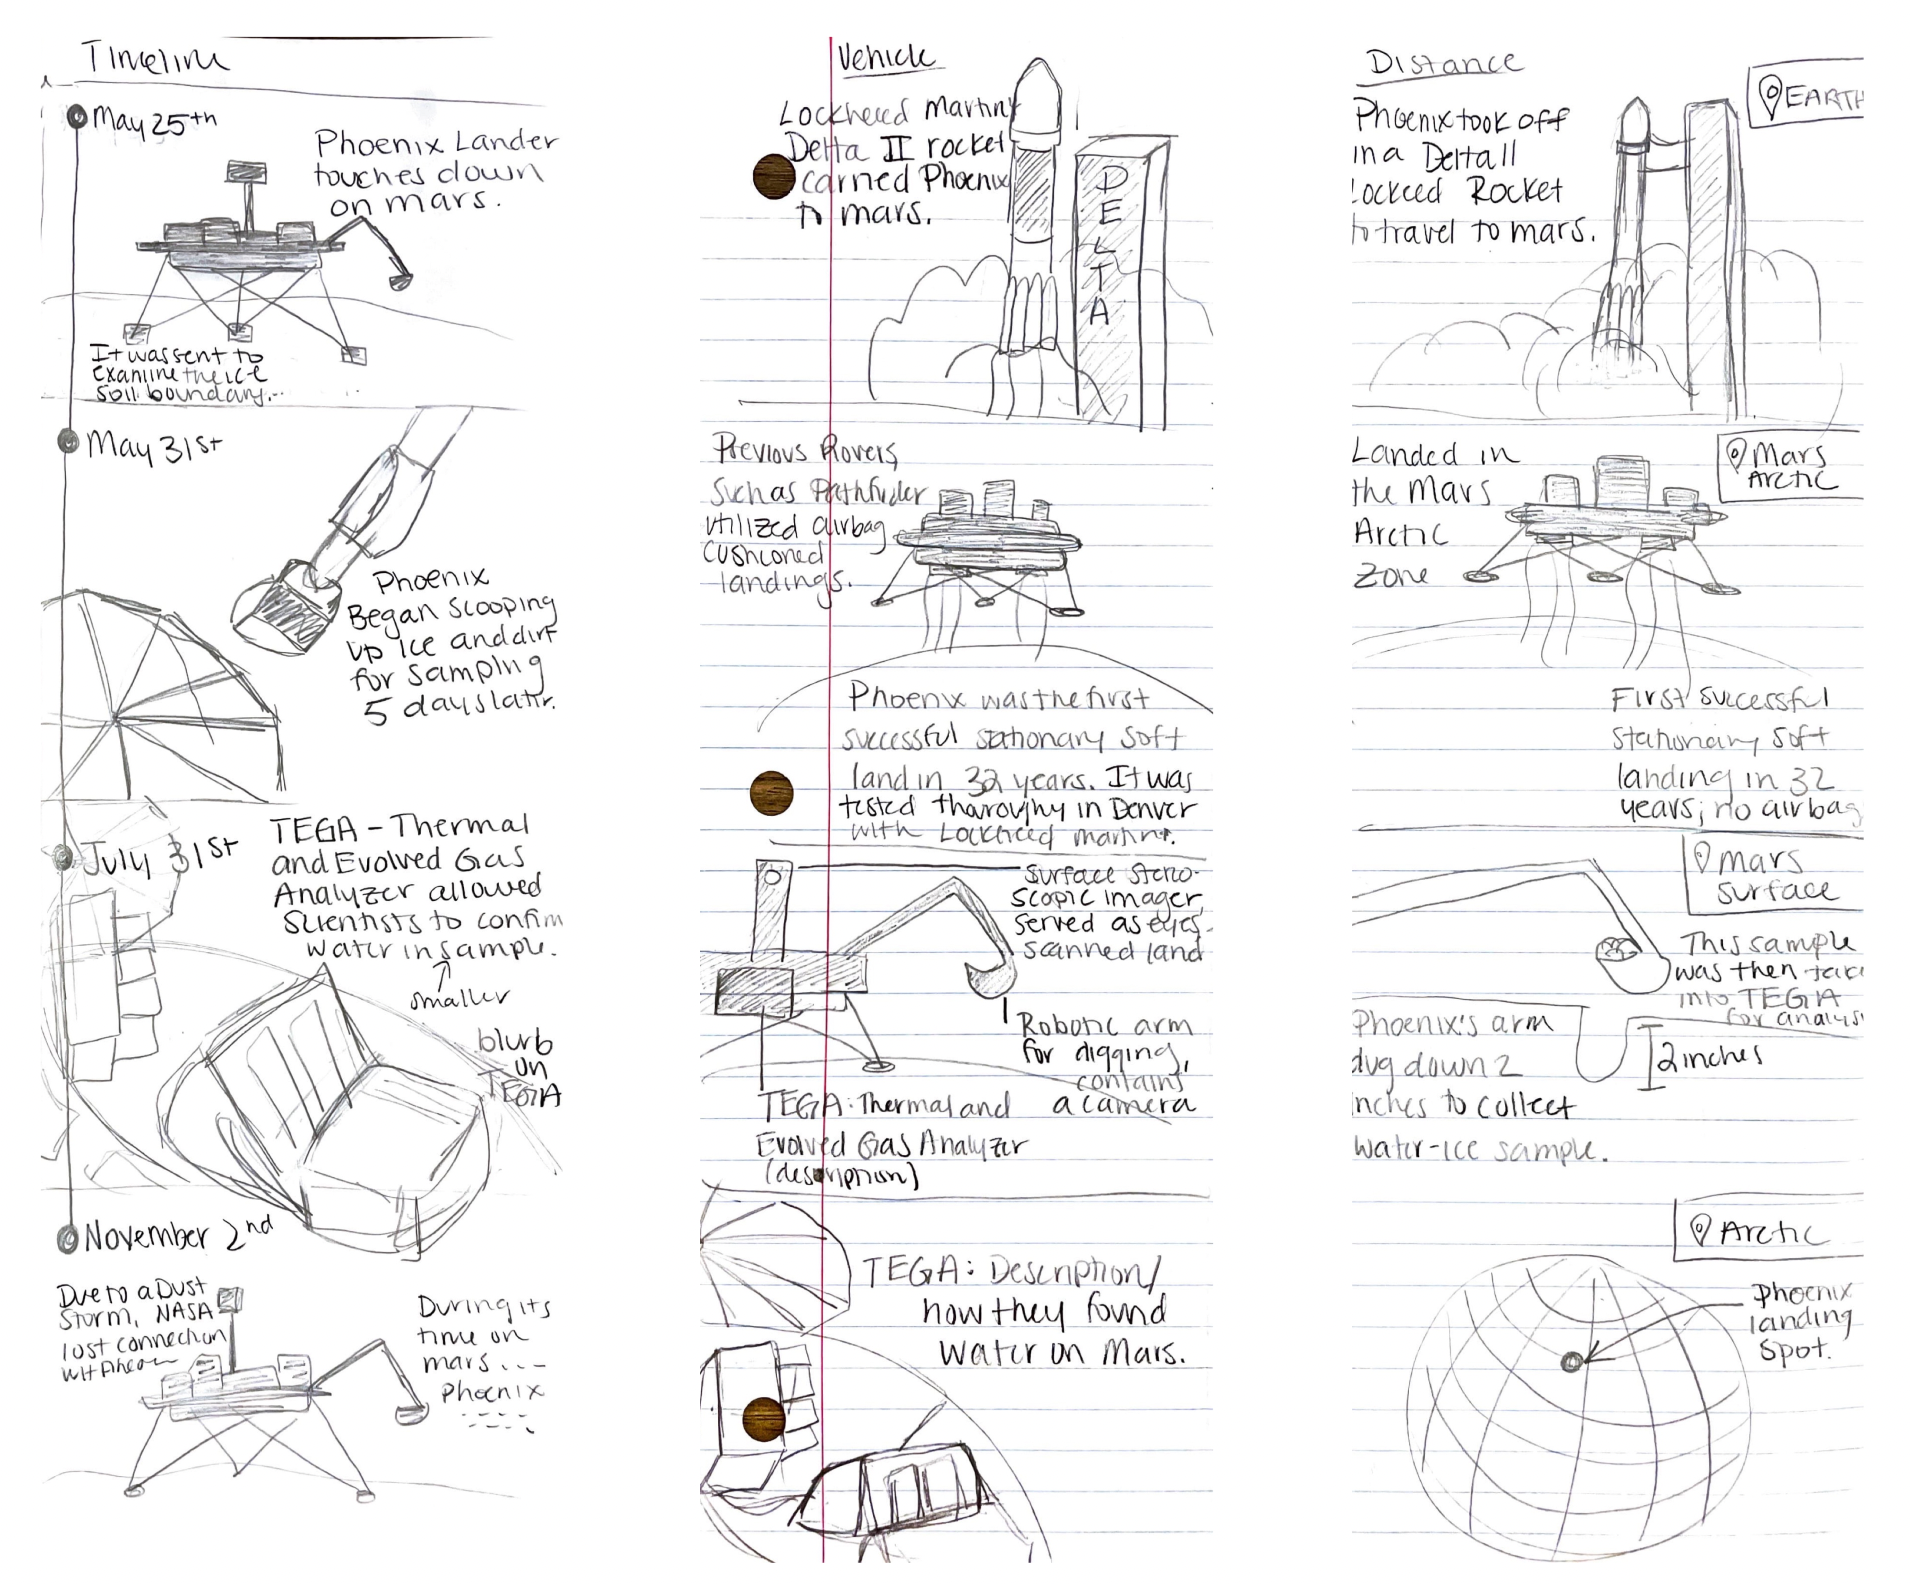 Timeline
May 25th
Phoenix Lander
touches down
on mars.
It was sent to
examine the ice
soil boundary...
May 31st
Phoenix
Began scooping
up ice and dirt
for sampling
5 days later.
July 31st
TEGA - Thermal
and Evolved Gas
Analyzer allowed
Scientists to confirm
water in sample.
smaller
blurb
on
TEGA
November 2nd
Due to a Dust
Storm, NASA
lost connection
During its
time on
mars...
Phoenix
Vehicle
Lockheed Martin
Delta II rocket
carried Phoenix
to mars.
DELTA
Previous Rovers
such as Pathfinder
utilized airbag
cushioned
landings.
Phoenix was the first
successful stationary soft
land in 32 years. It was
tested thoroughy in Denver
with Lockheed martin.
Surface stereo-
scopic imager,
served as eyes,
scanned land
Robotic arm
for digging,
contains
a camera
TEGA: Thermal and
Evolved Gas Analyzer
(description)
TEGA: Description/
how they found
Water on Mars.
Distance
EARTH
Phoenix took off
in a Delta II
Lockeed Rocket
to travel to mars.
Mars
Arctic
Landed in
the Mars
Arctic
Zone
First successful
stationary soft
landing in 32
years; no airbag
mars
surface
This sample
was then take
into TEGA
for analysi
Phoenix's arm
dug down 2
inches to collect
water-ice sample.
2 inches
Arctic
Phoenix
landing
spot.